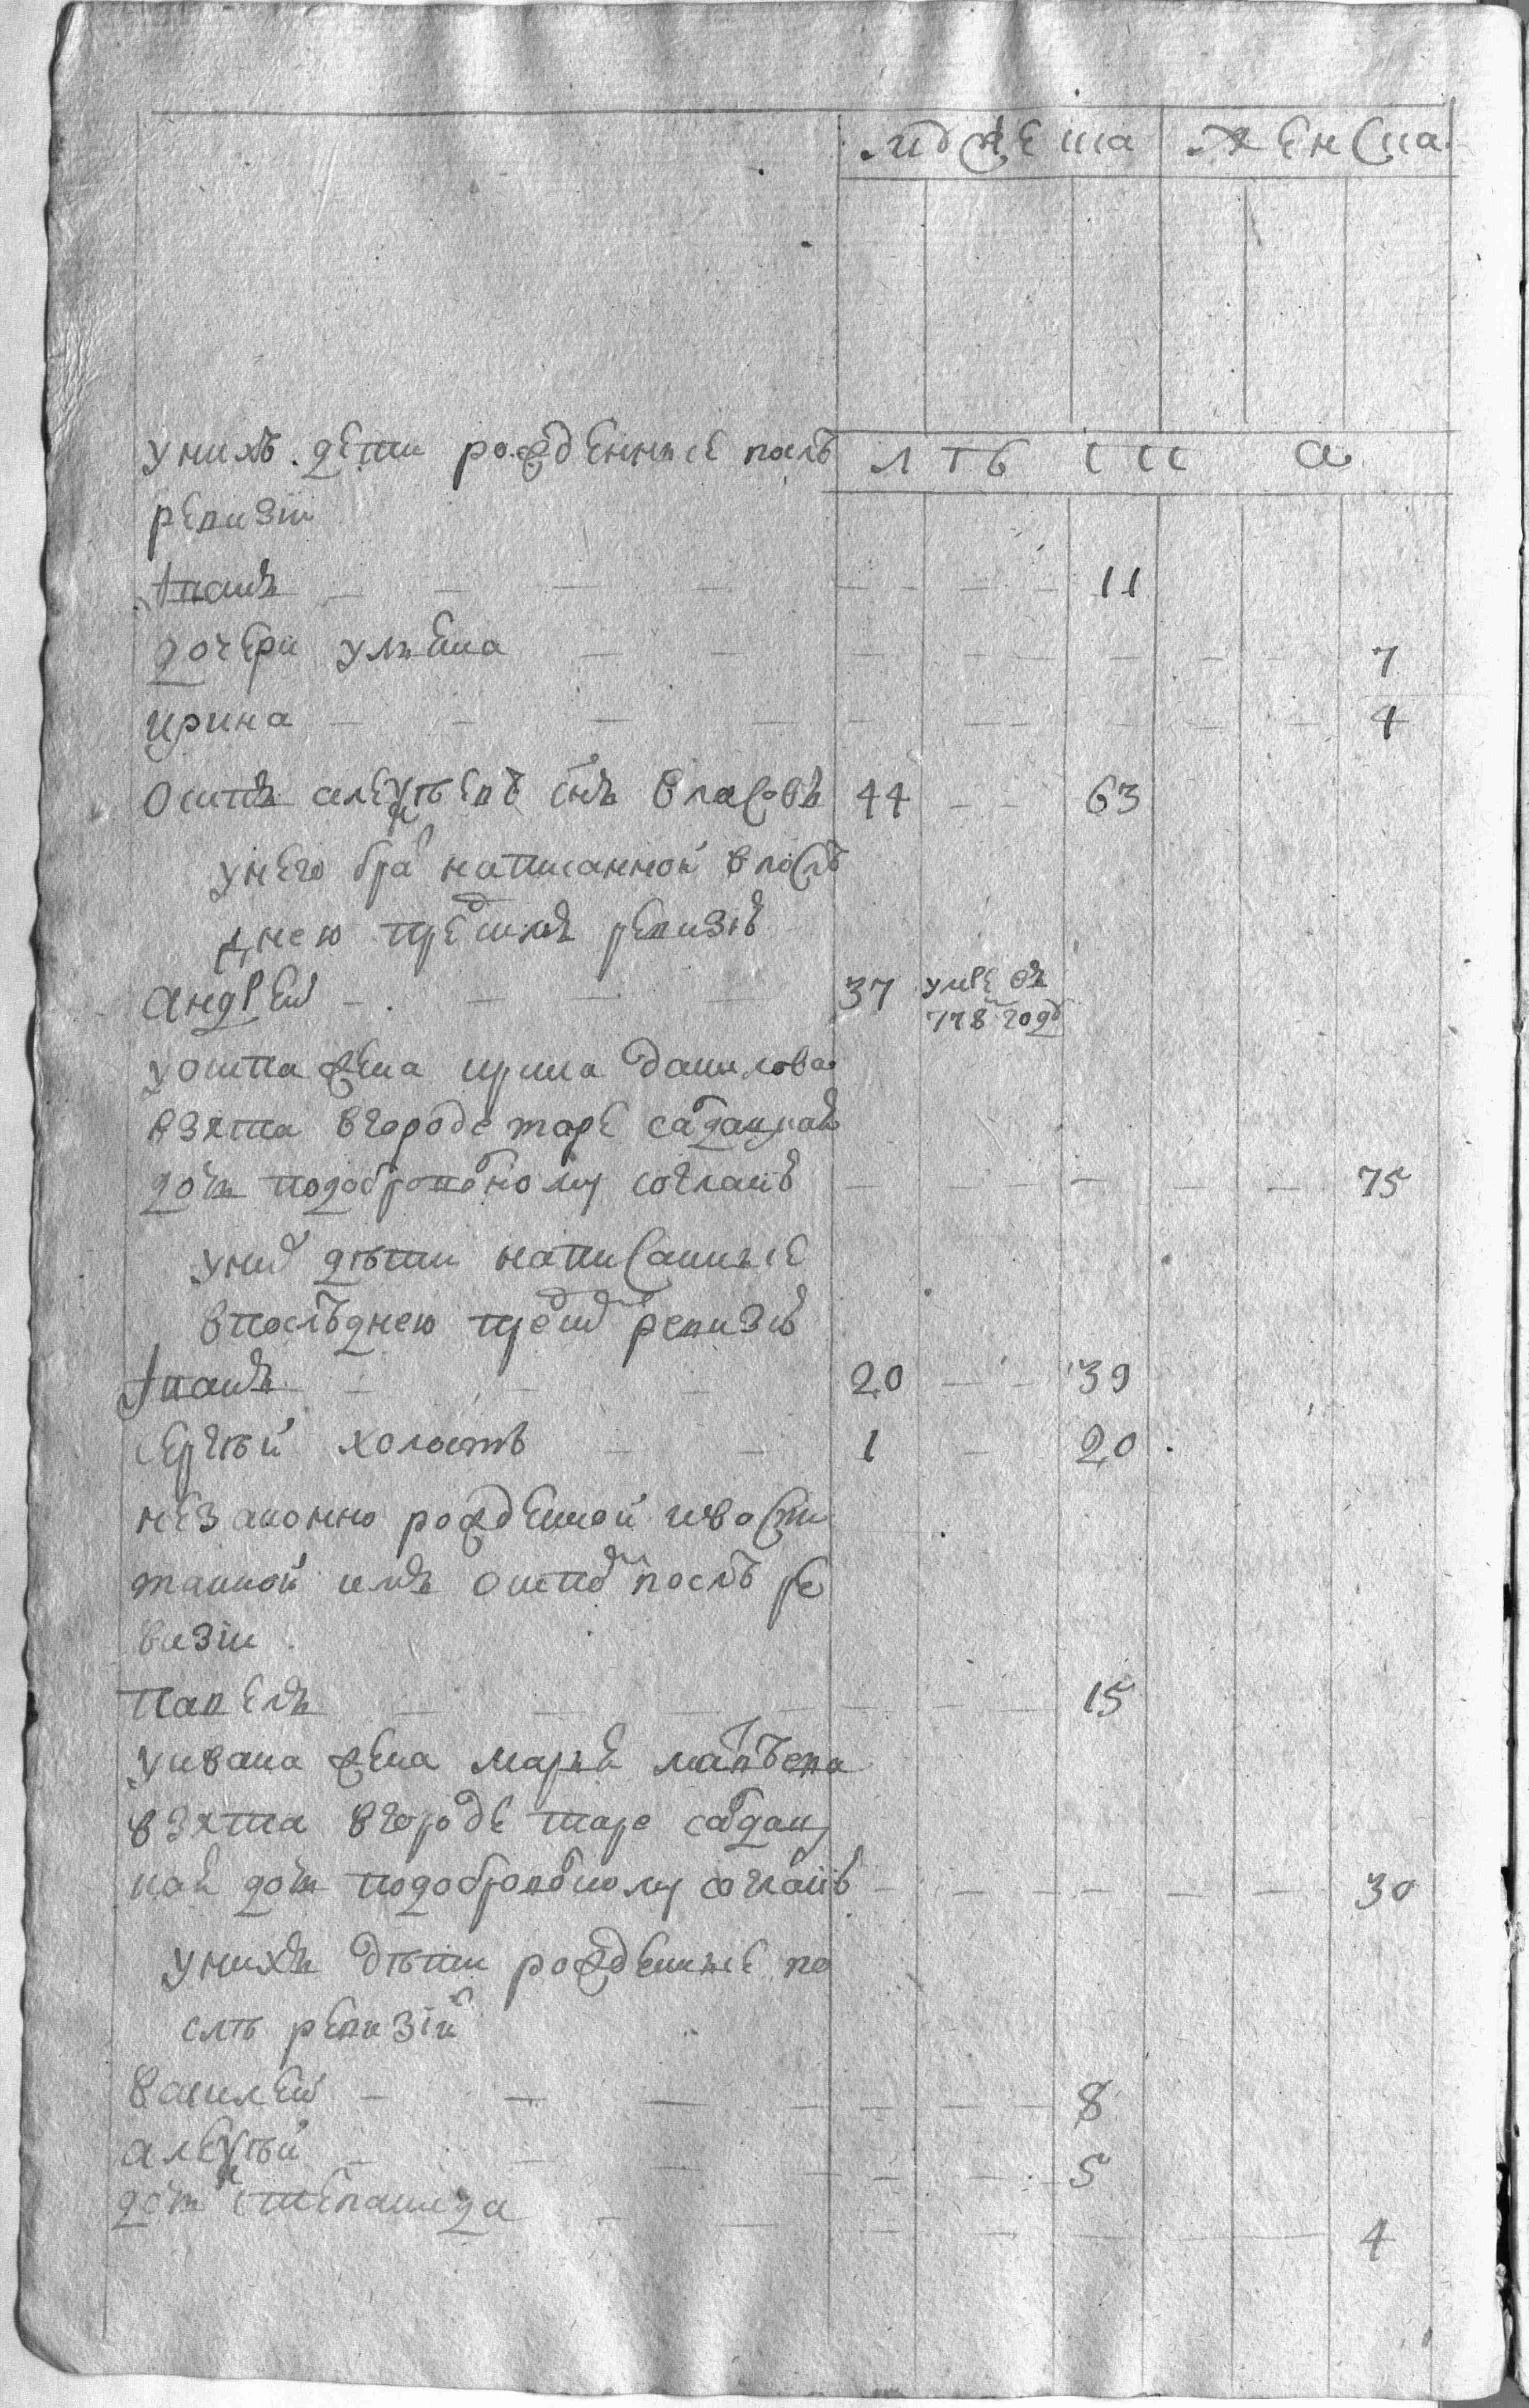 мужеска женска
у нихъ дети рожденные послѣ лѣта
ревизіи
Иванъ 11
дочери ульяна 7
ирина 4
осипъ алексѣевъ снъ власовъ 44 63
у него бра написанной в послѣ
днею пред симъ ревизію
андрей 37 умре въ 778 годѣ
у осипа жена ирина данилова
взята в городе таре салдацкая
дочь по добровольному согласію 75
у них дѣти написанные
в последнею пред сим ревизію
Иванъ 20 39
сергѣй холостъ 1 20
незаконно рожденной и воспи
танной имъ осипом послѣ ре
визіи
павелъ 15
у ивана жена марья матвеева
взята в городе таре салдац
кая дочь по добровольному согласію 30
у нихъ дѣти рожденные по
слѣ ревизіи
василей 8
алексѣй 5
дочь степанида 4